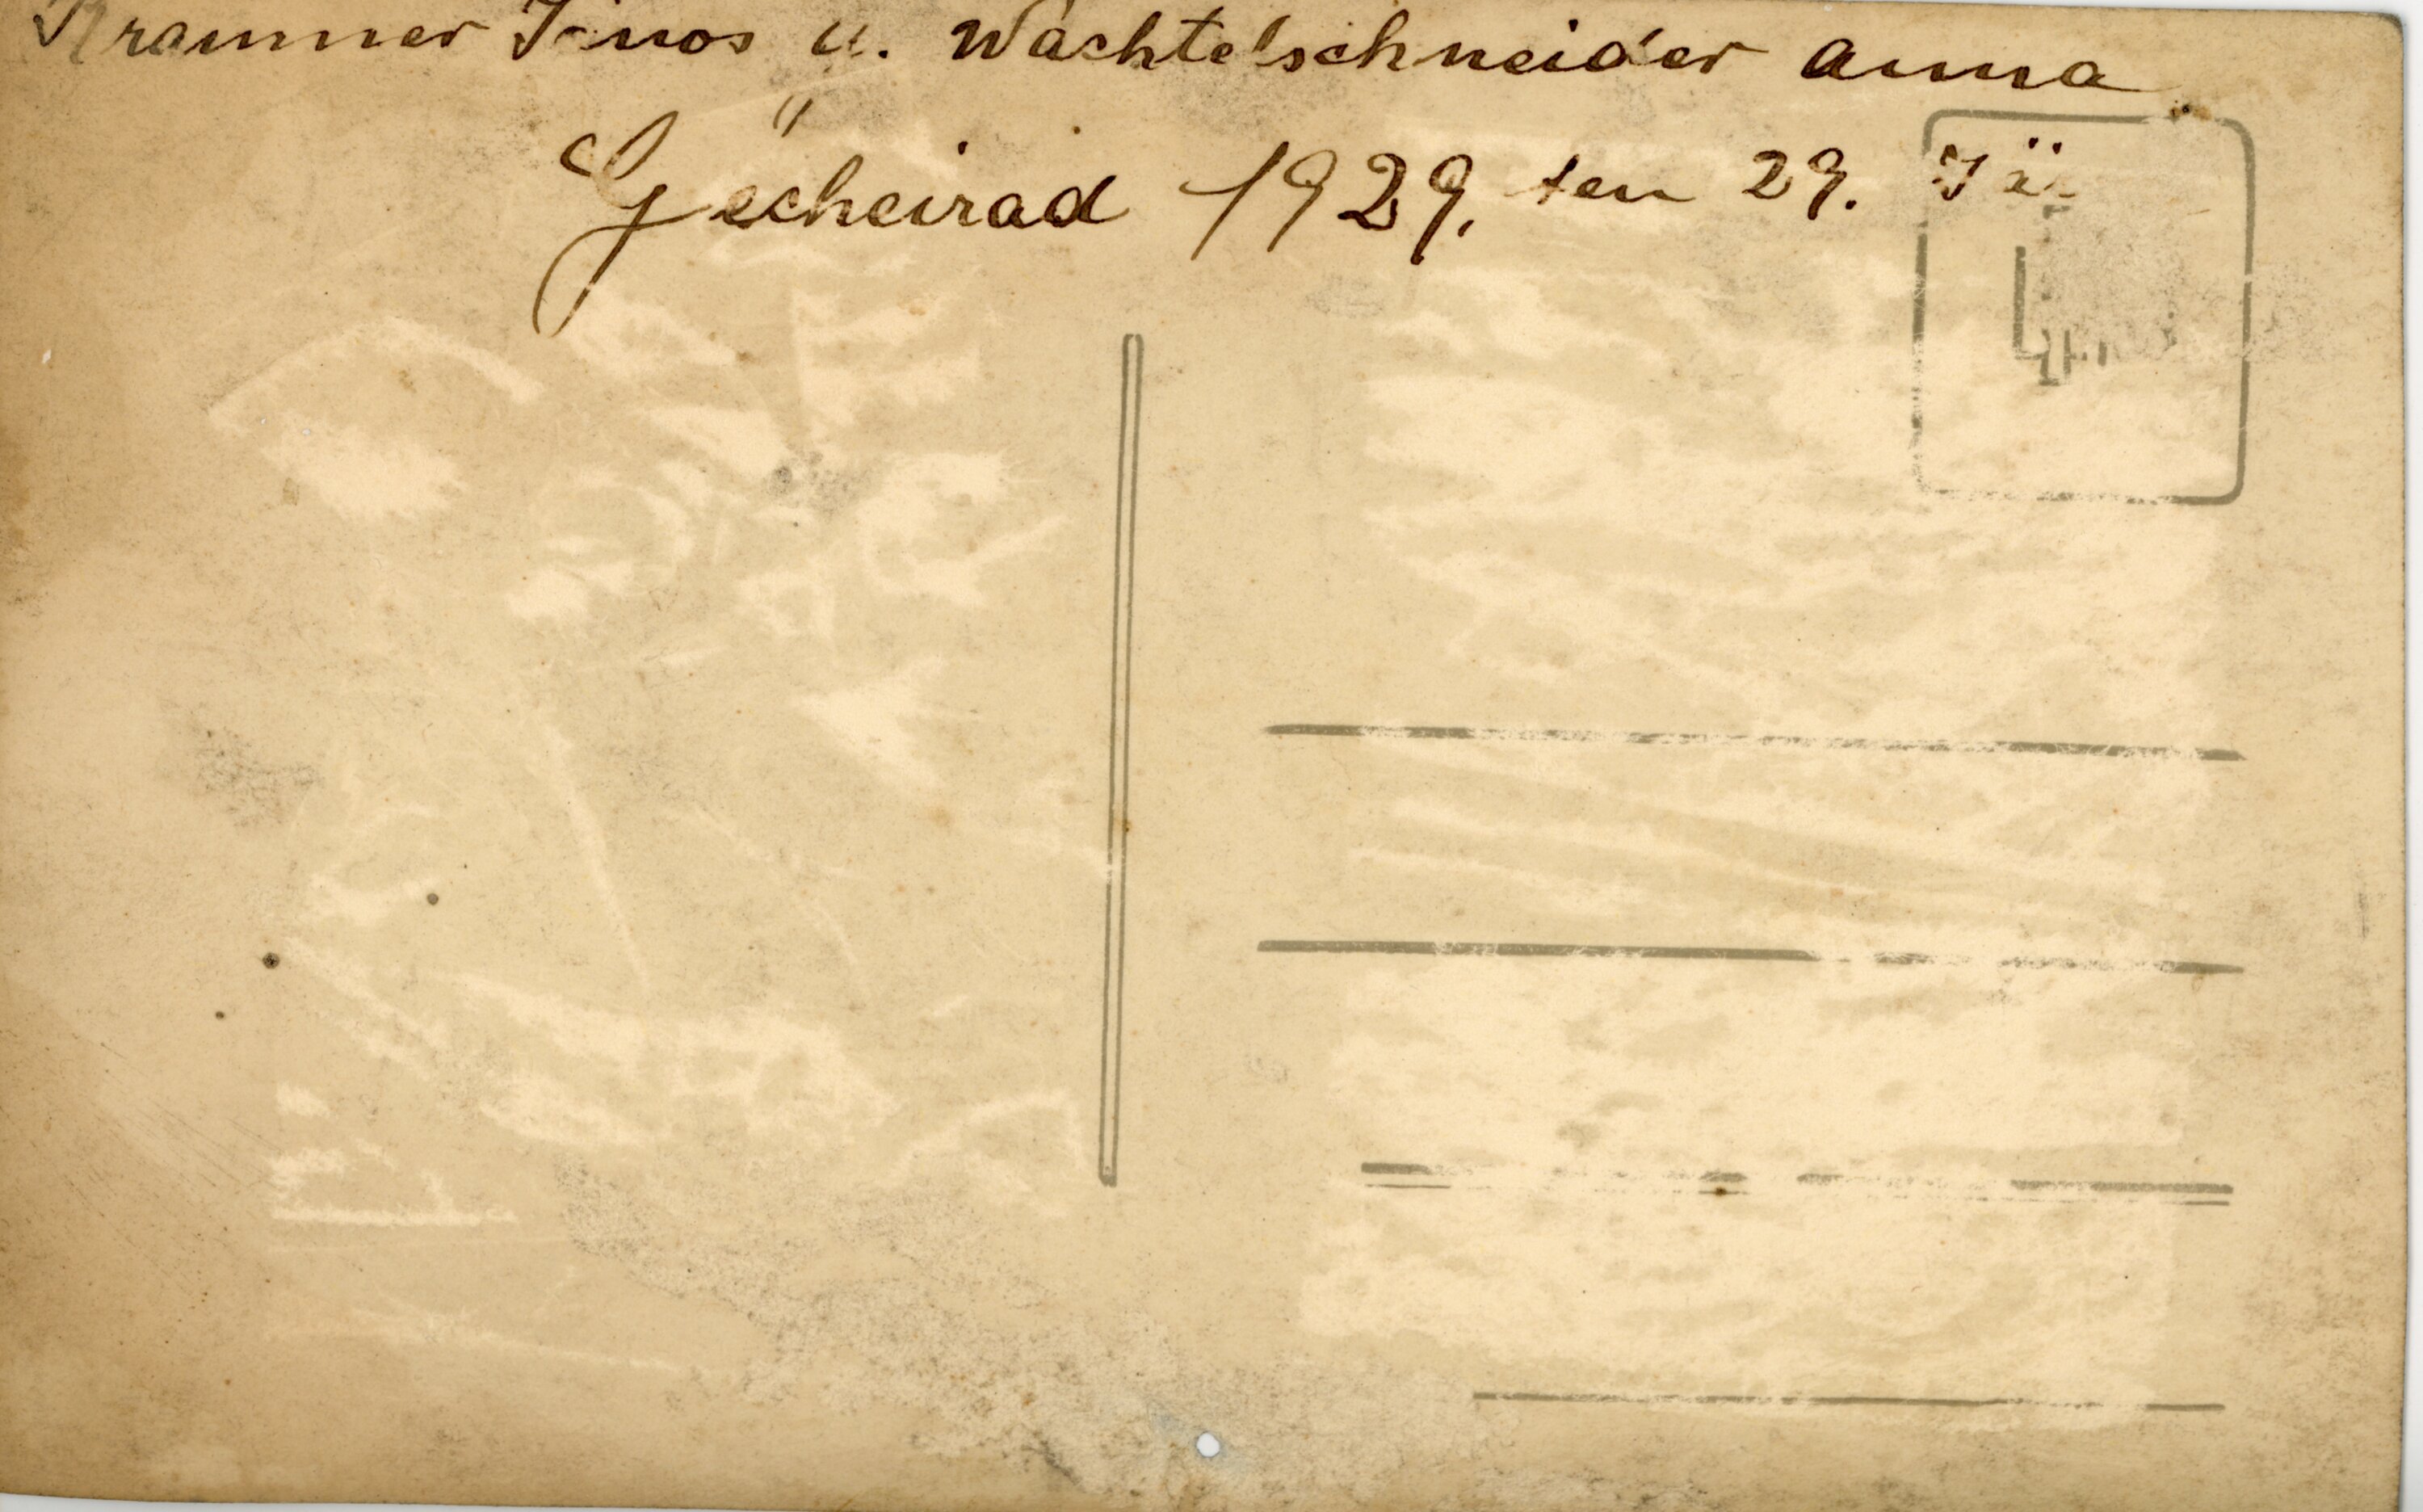 Krammer János u. Wachtelschneider Anna
Gëcheirad 1929. ten 29. Jä